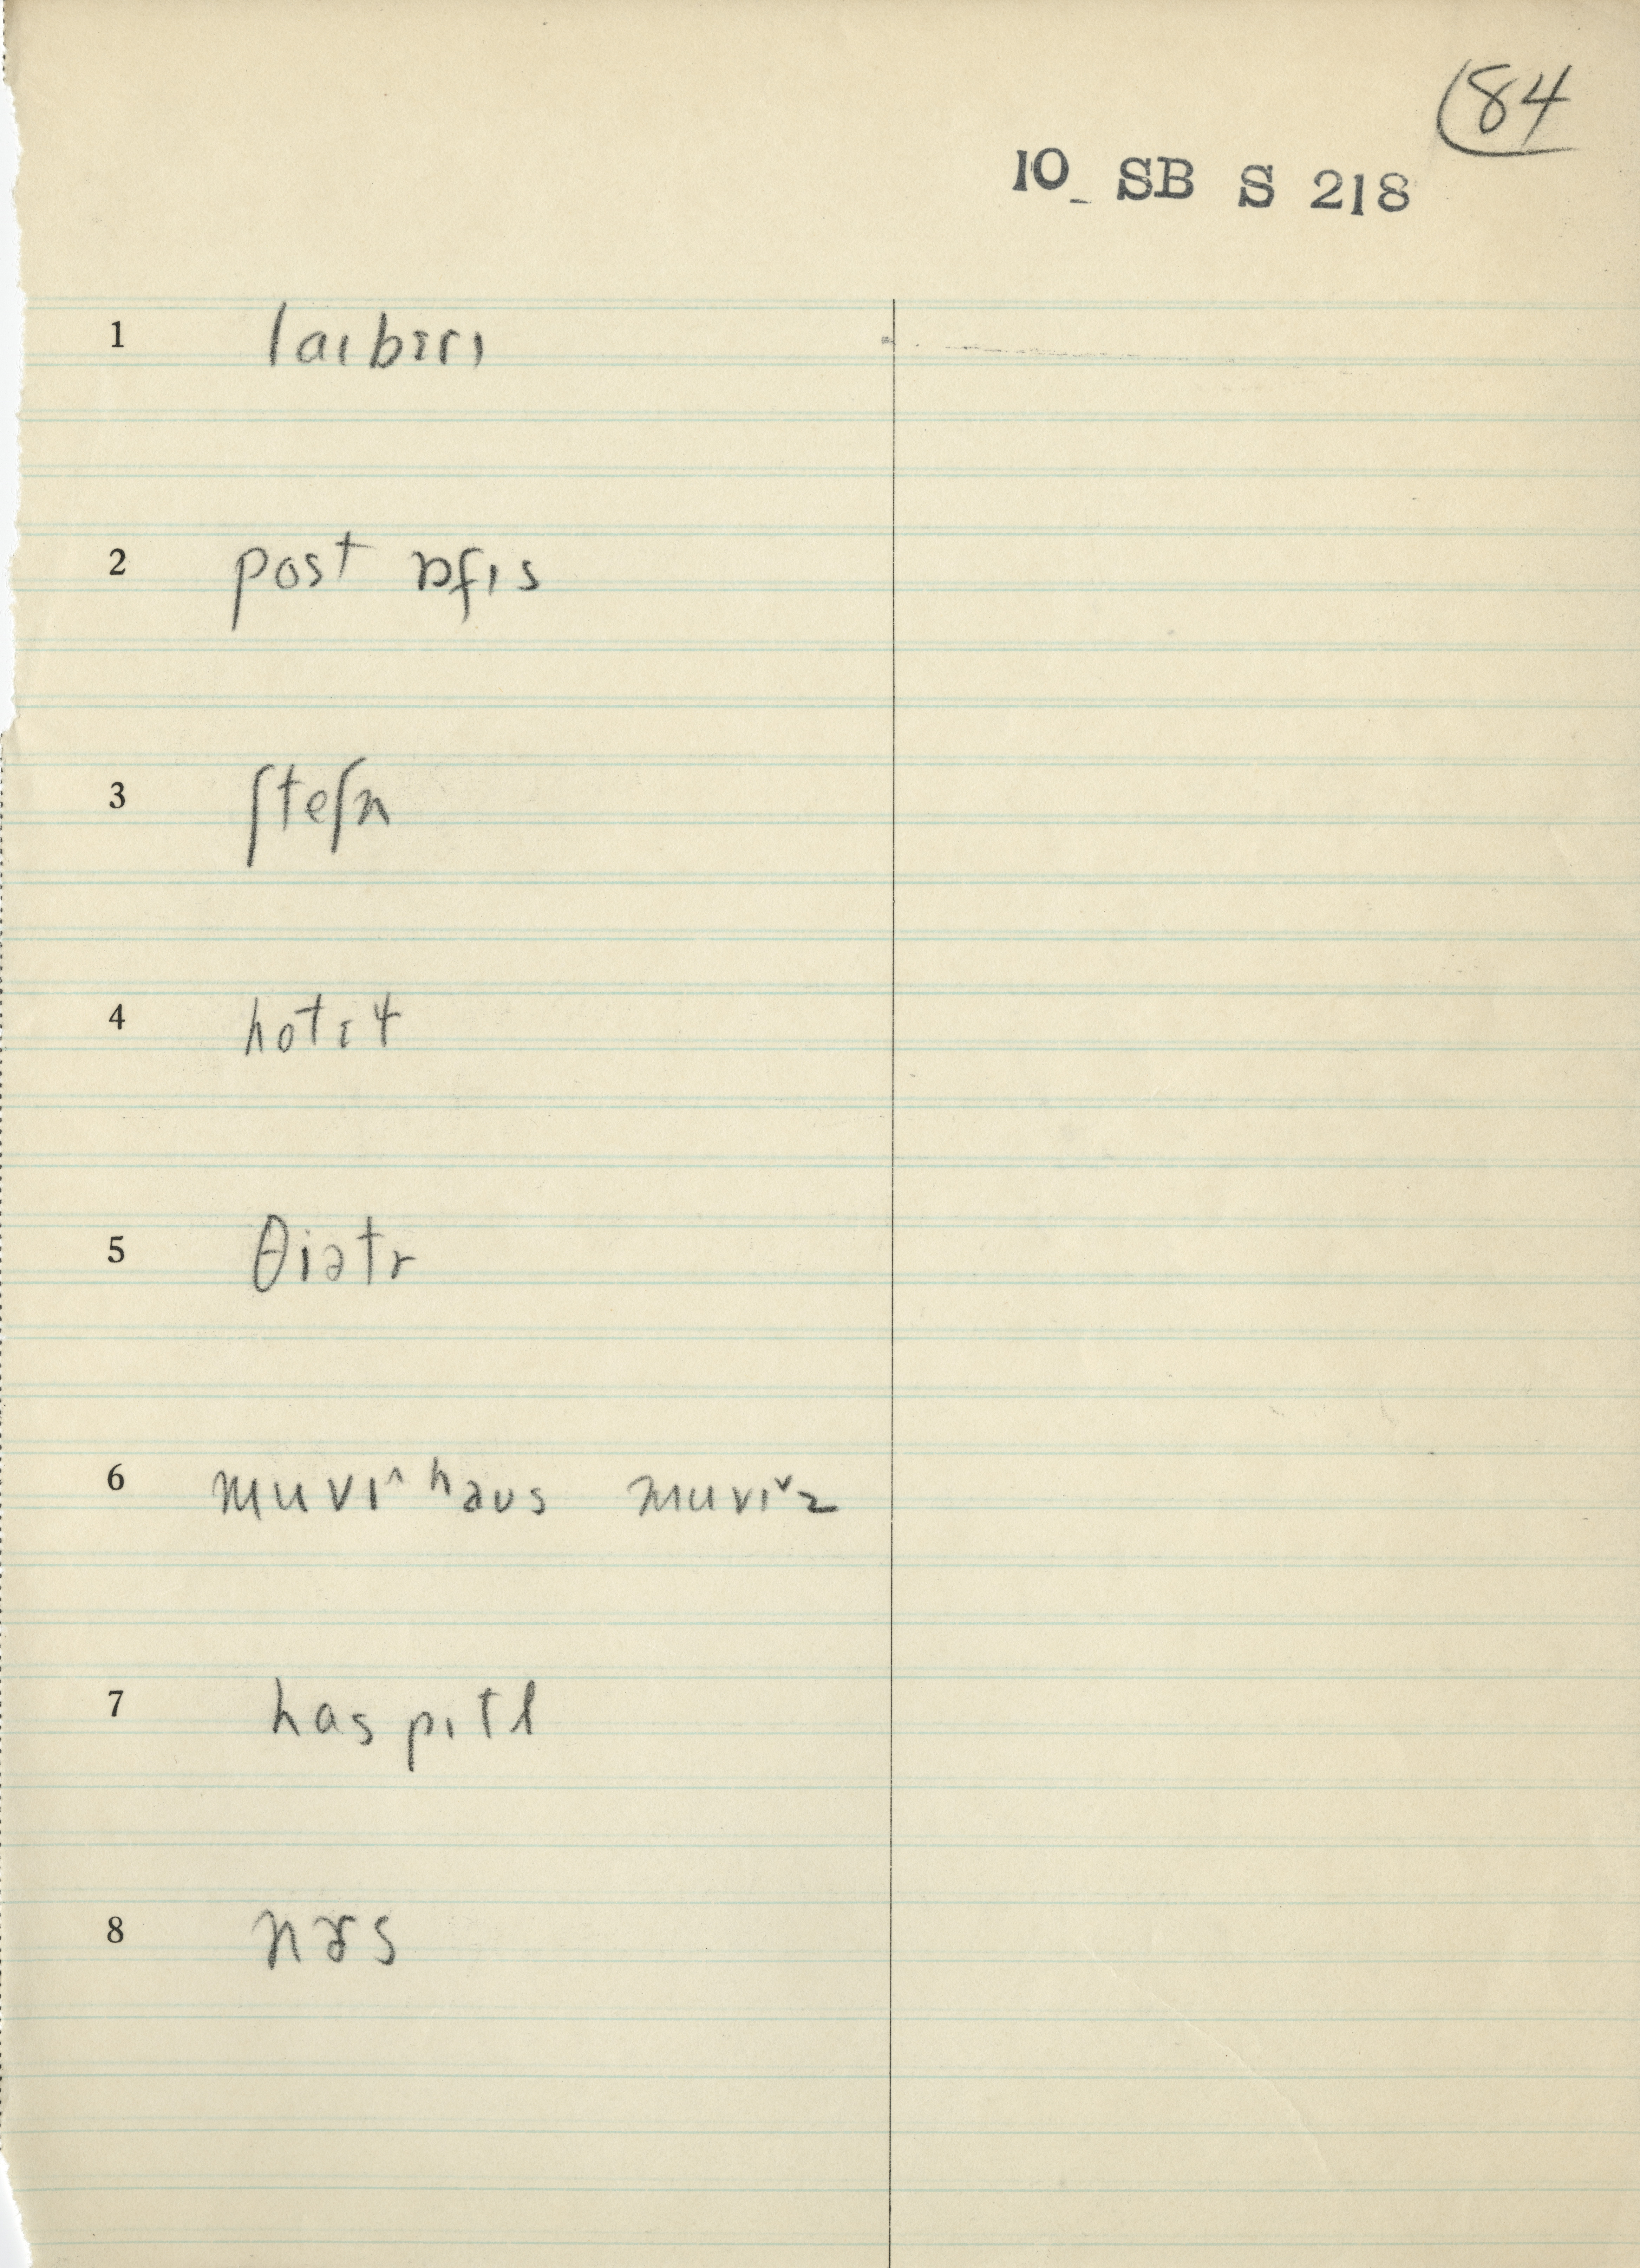 84
10_ SB S 218
1 laɪbɛrɪ
2 post ɒfɪs
3 ʃteʃn
4 hotɛɫ
5 θiətr
6 muvi^ haʊs muviˇz
7 haspɪtl
8 nɝs